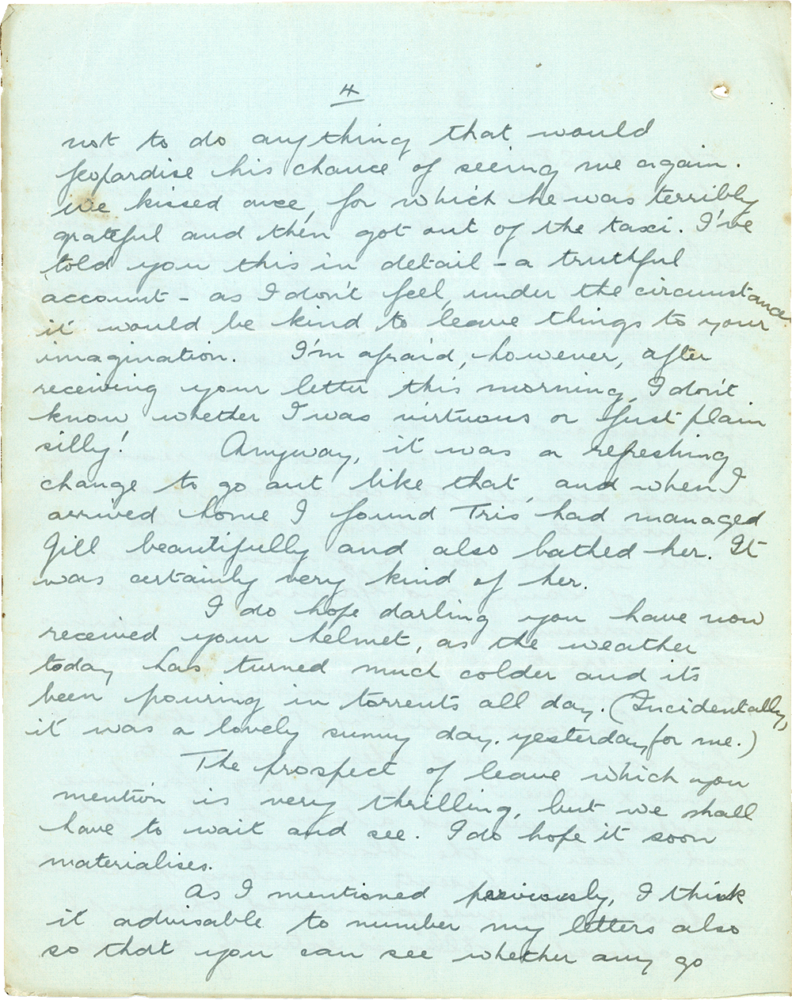 4
not to do anything that would
jeopardise his chance of seeing me again.
We kissed once, for which he was terribly
grateful and then got out of the taxi. I've
told you this in detail - a truthful
account - as I don't feel, under the circumstances
it would be kind to leave things to your
imagination. I'm afraid, however, after
receiving your letter this morning, I don't
know whether I was virtuous or just plain
silly! Anyway, it was a refreshing
change to go out like that, and when I
arrived home I found Tris had managed
Jill beautifully and also bathed her. It
was certainly very kind of her.
I do hope darling you have now
received your helmet, as the weather
today has turned much colder and its
been pouring in torrents all day. (Incidentally,
it was a lovely sunny day yesterday for me.)
The prospect of leave which you
mention is very thrilling, but we shall
have to wait and see. I do hope it soon
materialises.
As I mentioned previously, I think
it advisable to number my letters also
so that you can see whether any go